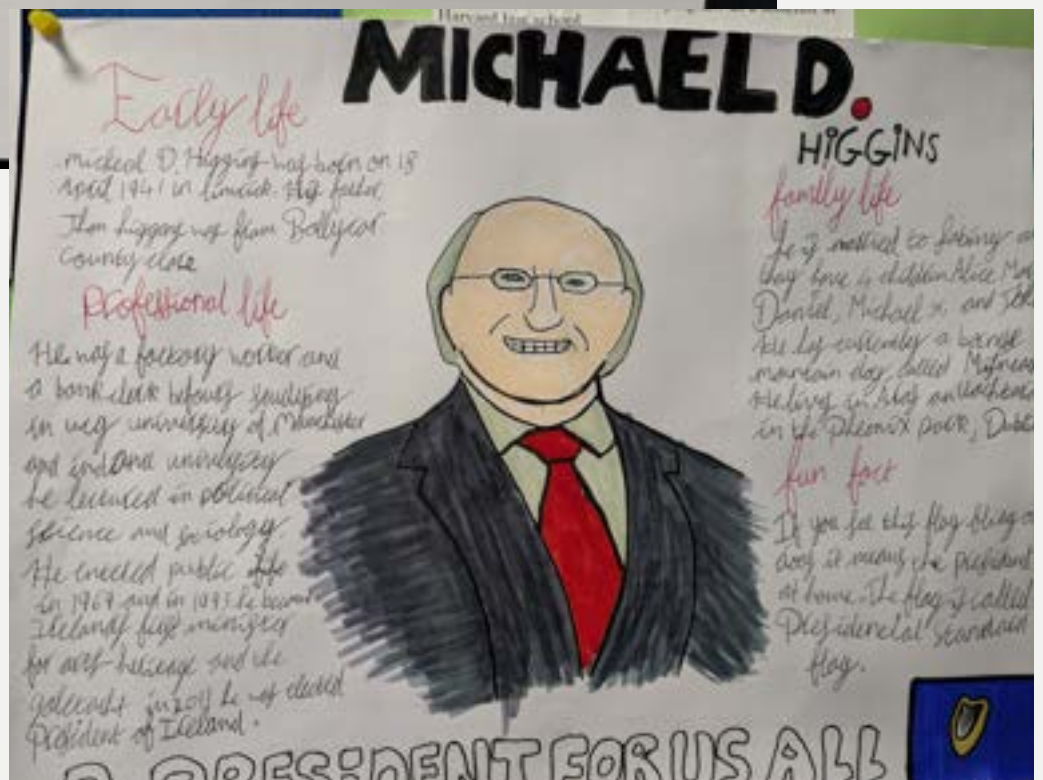 Harvard law school
MICHAEL D.
HiGGiNS
Early life
micheal D. Higgins was born on 18
April 1941 in limrick. His father
John higgins was from Ballycar
County clare
Professional life
He was a factory worker and
a bank clerk before studying
in ucg university of Manchester
and indiana university
he lectured in political
science and sociology
He enected public life
in 1969 and in 1993 he became
Irelands first minister
for art heritage and the
galetacht in 2011 he was elected
President of Iceland.
family life
he is married to Sabina
they have 4 children Alice
Daniel, Michael Jr. and
He has currently a bernese
mountain dog called
He lives in
in the Pheonix park,
fun fact
If you see this flag
it means the president
at home. The flag is called
Presidencial standard
flag.
A PRESiDENT FOR US ALL